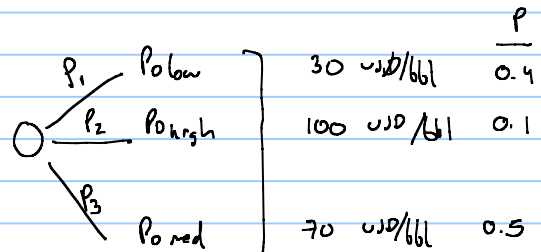 P
P1 Po low 30 USD/bbl 0.4
P2 Po high 100 USD/bbl 0.1
P3 Po med 70 USD/bbl 0.5